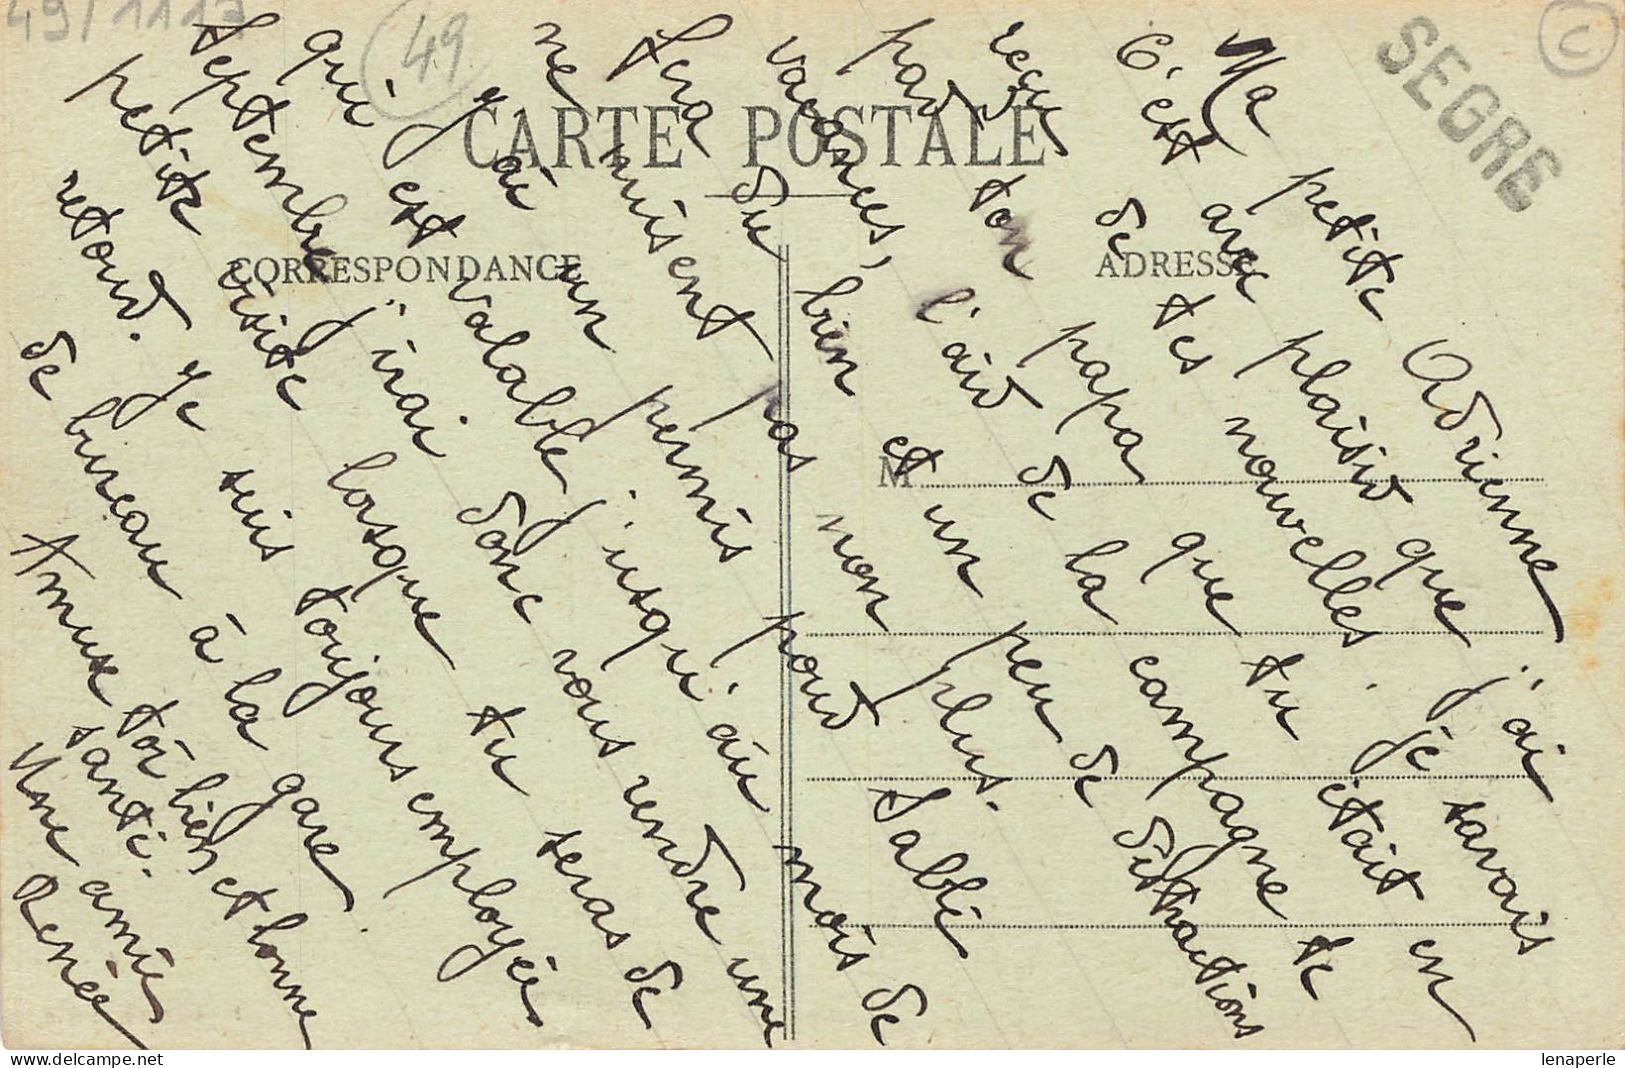 49/1117
49
C
SEGRE
CARTE POSTALE
CORRESPONDANCE
ADRESSE
M
Ma petite Adrienne
C'est avec plaisir que j'ai
reçu de tes nouvelles. je savais
par ton papa que tu était en
vacances, l'air de la campagne te
fera du bien et un peu de distractions
ne nuisent pas non plus.
J'ai un permis pour Sablé
qui est valable jusqu'au mois de
septembre j'irai donc vous rendre une
petite visite lorsque tu seras de
retour. Je suis toujours employée
de bureau à la gare.
Amuse toi bien et bonne
santé.
Une amie
Renée
lenaperle